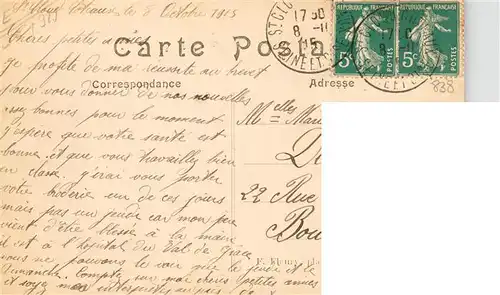 St Cloud Coteaux, le 8 Octobre 1915
Chères petites amies
Carte Postale
je profite de ma réussite au brevet
Correspondance
Adresse
pour vous donner de nos nouvelles
bonnes pour le moment
j'espère que votre santé est
bonne, et que vous travaillez bien
en classe. j'irai vous porter
votre broderie un de ces jours
mais pas un jeudi car mon
vient d'être blessé à la main
il est à l'hôpital du Val de Grâce
nous ne pouvons le voir que le jeudi et le
Dimanche. Compte sur moi chères petites amies
et soyez mon interprète
Melles Marie
22 Rue
Bou
E. Fleury
ST CLOUD
17 30
8 -10
15
SEINE ET OISE
RÉPUBLIQUE FRANÇAISE
5c
POSTES
RÉPUBLIQUE FRANÇAISE
5c
POSTES
838